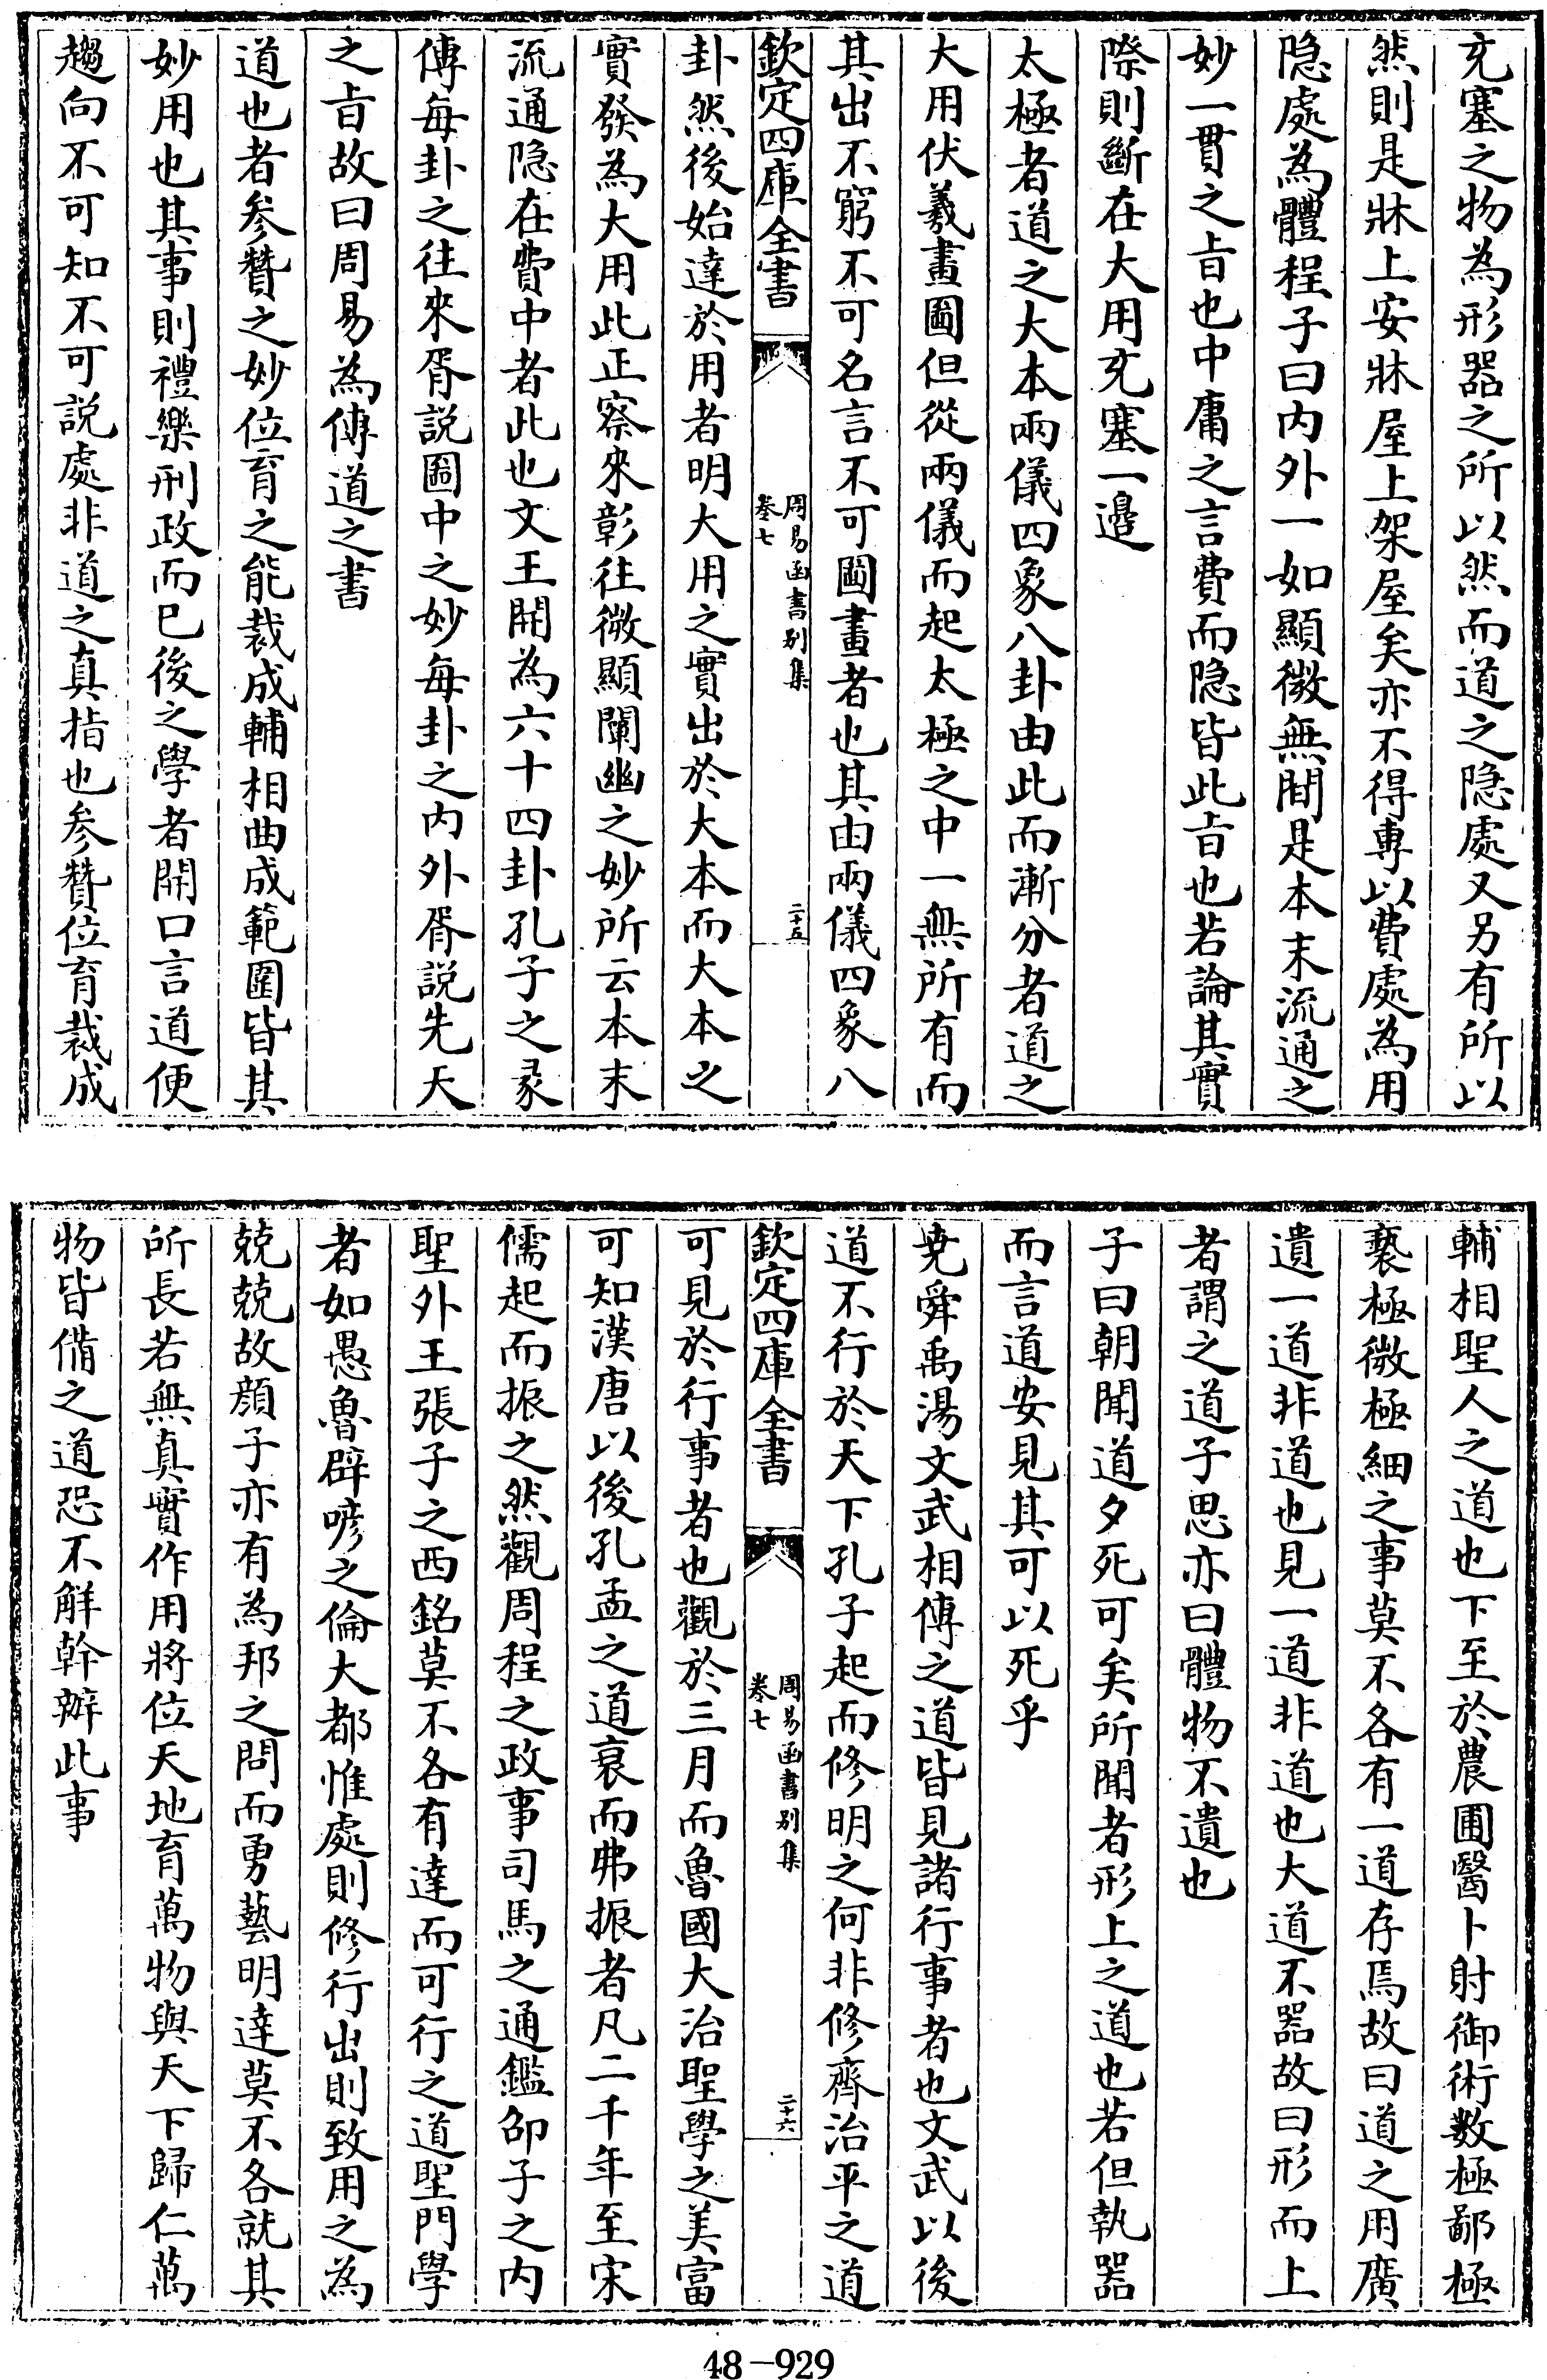 充塞之物為形器之所以然而道之隐處又另有所以
然則是牀上安牀屋上架屋矣亦不得專以費處為用
隐處為體程子曰内外一如顯微無間是本末流通之
妙一貫之㫖也中庸之言費而隐皆此㫖也若論其實
際則斷在大用充塞一邉
太極者道之大本兩儀四象八卦由此而漸分者道之
大用伏羲畫圖但從兩儀而起太極之中一無所有而
其出不窮不可名言不可圖畫者也其由兩儀四象八
欽定四庫全書
周易函書别集
卷七
二十五
卦然後始達於用者明大用之實出於大本而大本之
實發為大用此正察來彰往微顯闡幽之妙所云本末
流通隐在費中者此也文王開為六十四卦孔子之彖
傳每卦之往來胥説圖中之妙每卦之内外胥説先天
之㫖故曰周易為傳道之書
道也者参贊之妙位育之能裁成輔相曲成範圍皆其
妙用也其事則禮樂刑政而已後之學者開口言道便
趨向不可知不可説處非道之真指也参贊位育裁成
輔相聖人之道也下至於農圃醫卜射御術數極鄙極
褻極微極細之事莫不各有一道存焉故曰道之用廣
遺一道非道也見一道非道也大道不器故曰形而上
者謂之道子思亦曰體物不遺也
子曰朝聞道夕死可矣所聞者形上之道也若但執器
而言道安見其可以死乎
堯舜禹湯文武相傳之道皆見諸行事者也文武以後
道不行於天下孔子起而修明之何非修齊治平之道
欽定四庫全書
周易函書别集
卷七
二十六
可見於行事者也觀於三月而魯國大治聖學之美富
可知漢唐以後孔孟之道衰而弗振者凡二千年至宋
儒起而振之然觀周程之政事司馬之通鑑邵子之内
聖外王張子之西銘莫不各有達而可行之道聖門學
者如愚魯辟喭之倫大都惟處則修行出則致用之為
兢兢故顔子亦有為邦之問而勇藝明達莫不各就其
所長若無真實作用將位天地育萬物與天下歸仁萬
物皆備之道恐不解幹辦此事
48-929